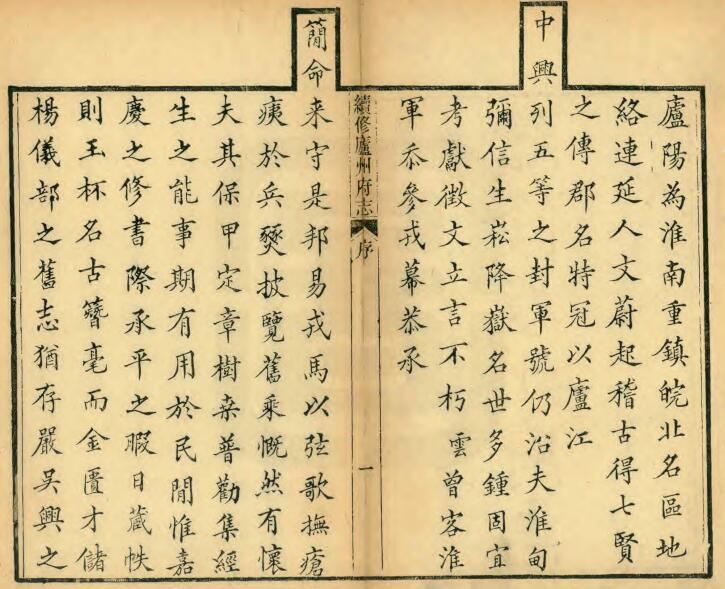 廬陽為淮南重鎮皖北名區地
絡連延人文蔚起稽古得七賢
之傳郡名特冠以廬江
中興列五等之封軍號仍沿夫淮甸
彌信生崧降嶽名世多鍾固宜
考獻徵文立言不朽雲曾客淮
軍忝參戎幕恭承
續修廬州府志 序 一
簡命来守是邦易戎馬以弦歌撫瘡
痍於兵燹披覽舊乘慨然有懷
夫其保甲定章樹桒普勸集經
生之能事期有用於民閒惟嘉
慶之修書際承平之暇日蔵帙
則玉杯名古簪毫而金匱才儲
楊儀部之舊志猶存嚴吳興之